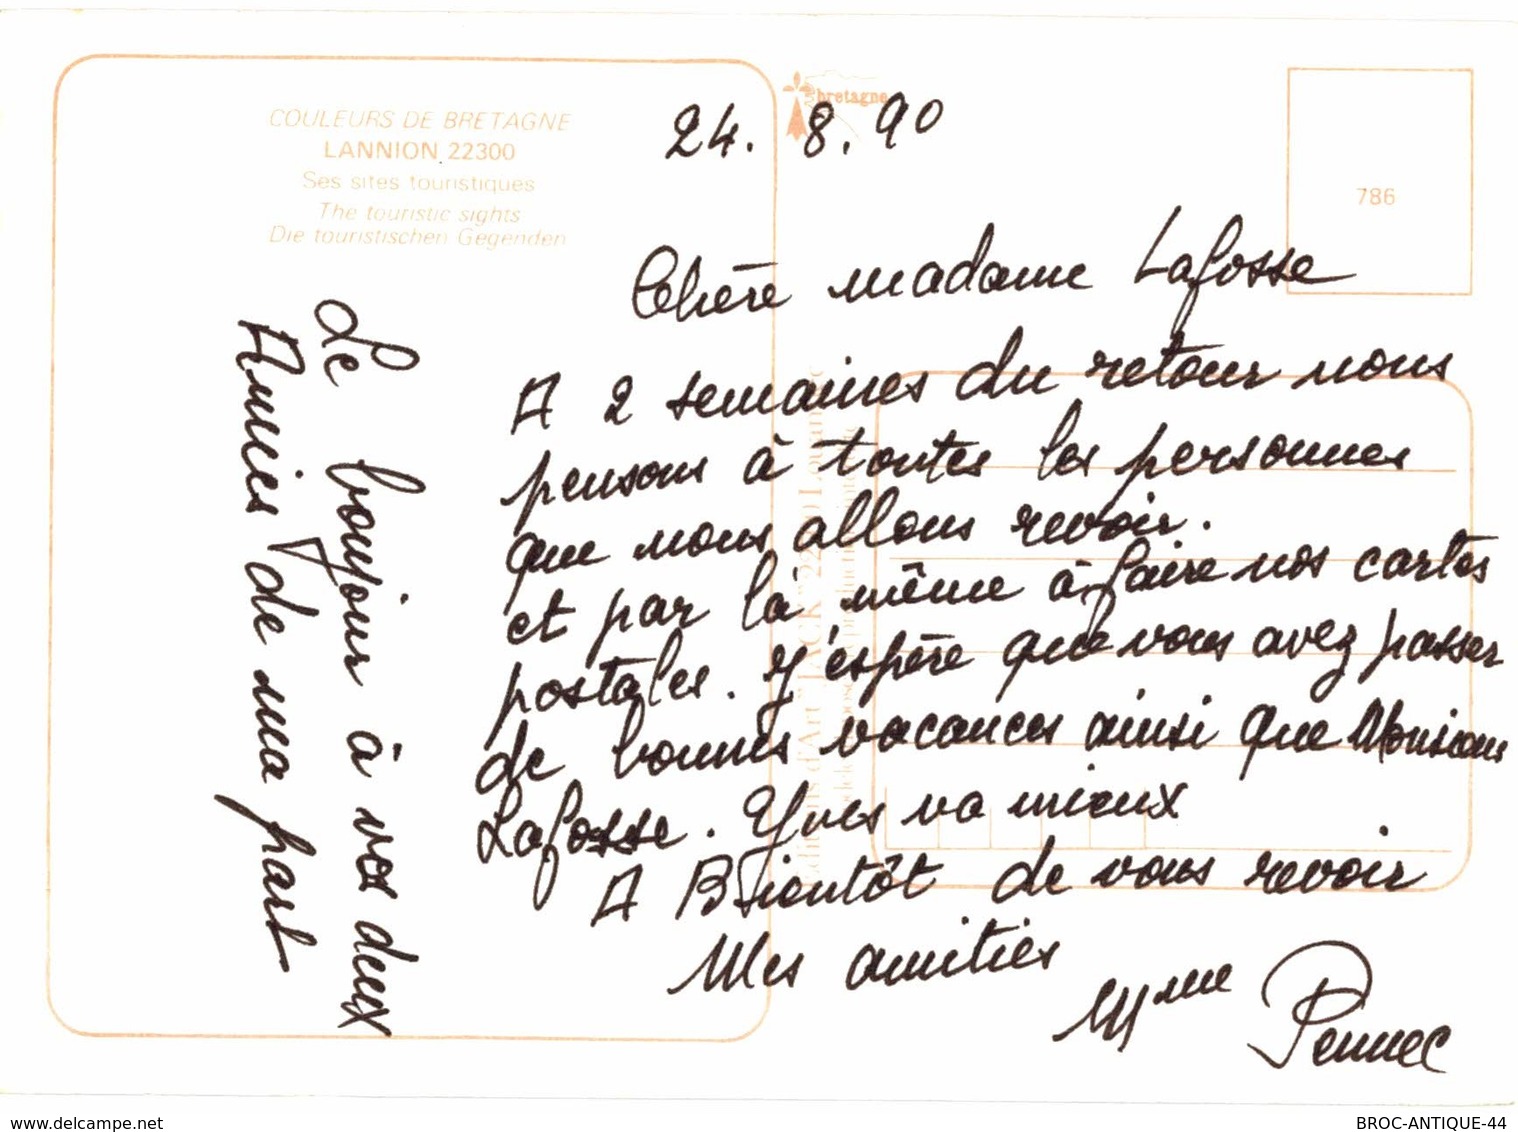 COULEURS DE BRETAGNE
LANNION 22300
Ses sites touristiques
The touristic sights
Die touristischen Gegenden
bretagne
786
24. 8. 90
Chère madame Lafosse
A 2 semaines du retour nous
pensons à toutes les personnes
que nous allons revoir.
et par là même à faire nos cartes
postales. J'espère que vous avez passer
de bonnes vacances ainsi que Monsieur
Lafosse. Yves va mieux
A Bientôt de vous revoir
Mes amitiés
Mme Pennec
Le bonjour à vos deux
Amies de ma part
Editions d'Art "JACK"
www.delcampe.net
BROC-ANTIQUE-44